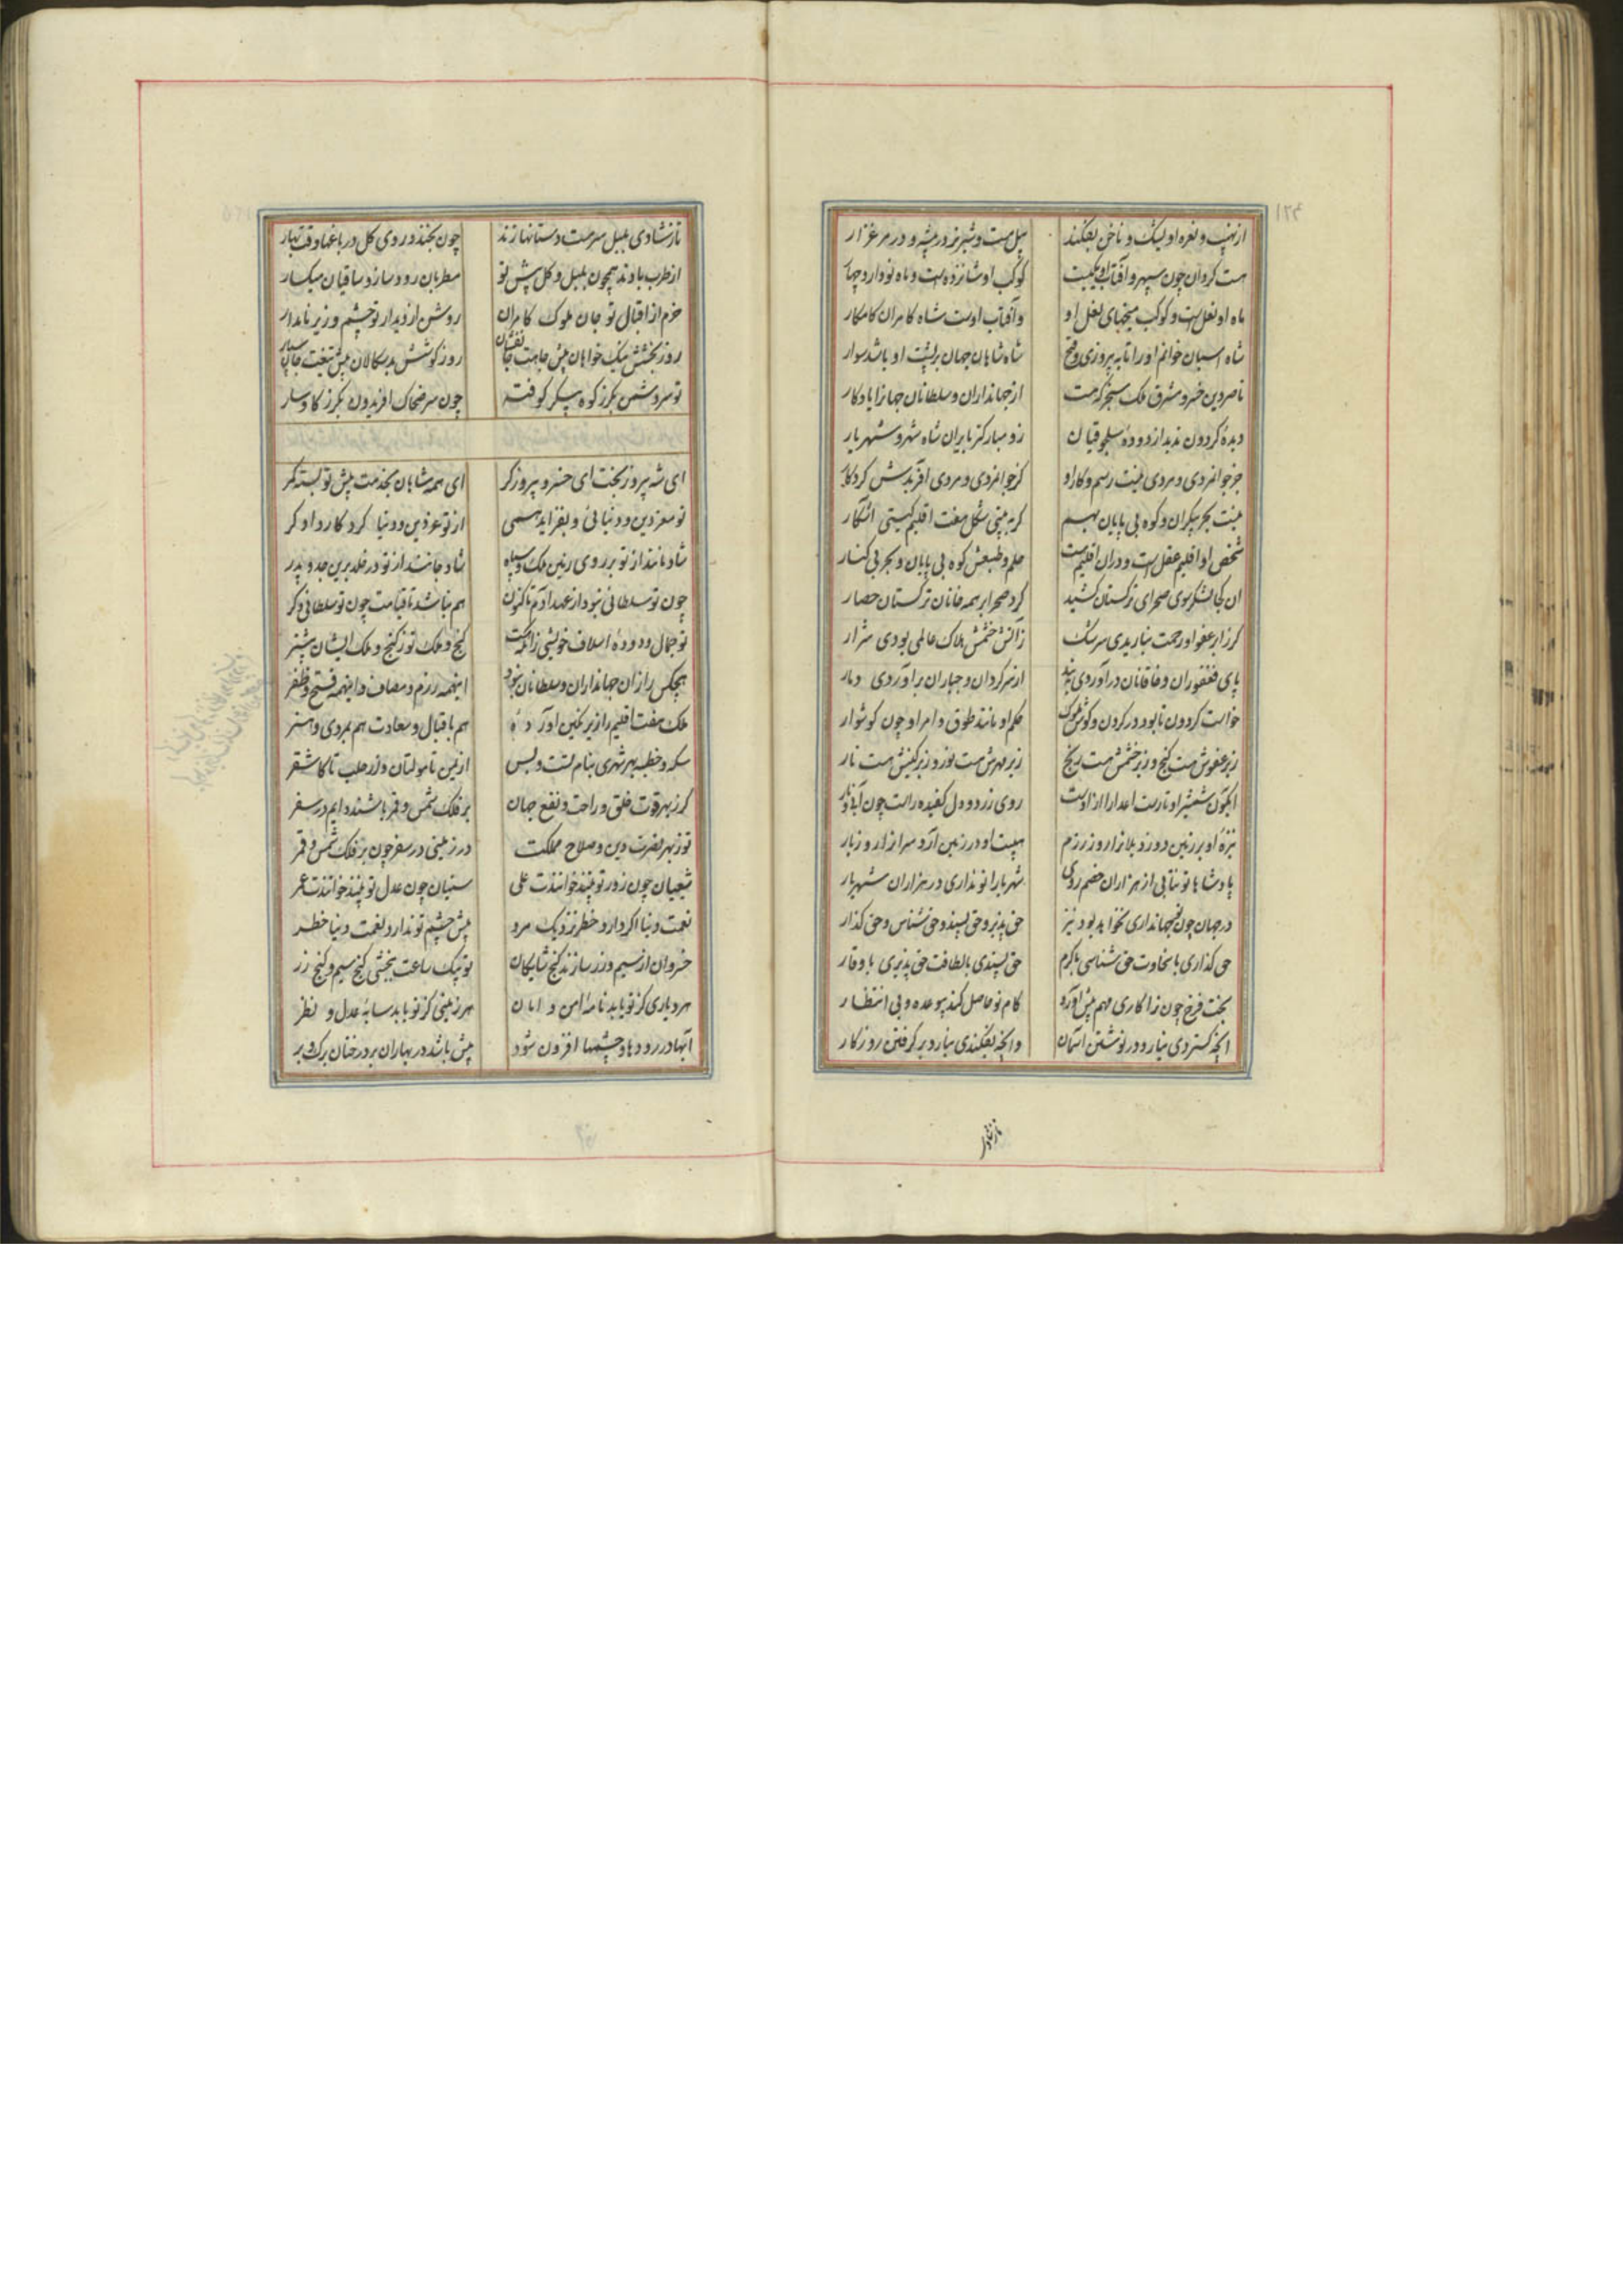 از نهیب و نعره او یشک و ناخن بفکند پیل مست و شیر نر در بیشه و در مرغزار
هست گردان چون سپهر و آفتاب او یکیست کوکب او شانزده است و ماه نو دارد چهار
ماه او نعل است و کوکب میخهای نعل او و آفتاب اوست شاه کامران کامکار
شاه اسبان خوانم او را تا به پیروزی و فتح شاه شاهان جهان بر پشت او باشد سوار
ناصر دین خسرو مشرق ملک سنجر که هست از جهانداران و سلطانان جهانرا یادگار
دیدهٔ گردون ندید از دودهٔ سلجوقیان زو مبارکتر بایران شاه شهر و شهریار
جز جوانمردی و مردی نیست رسم و کار او کز جوانمردی و مردی آفریدش کردگار
نیست بحر بیکران و کوه بی پایان بهم گر به بینی شکل هفت اقلیم گیتی آشکار
شخص او اقلیم عقل است و در آن اقلیم هست حلم و طبعش کوه بی پایان و بحر بی کنار
آن کجا لشکر سوی صحرای ترکستان کشید کرد صحرا بر همه خانان ترکستان حصار
گر ز ابر عفو او رحمت نباریدی سرشک ز آتش خشمش هلاک عالمی بودی شرار
پای فغفوران و خاقانان در آوردی به بند از سر گردان و جباران برآوردی دمار
خواست گردون تا بود در گردن و گوش ملوک حکم او مانند طوق و امر او چون گوشوار
زیر عفوش هست گنج و زیر خشمش هست رنج زیر مهرش هست نور و زیر کینش هست نار
آبگون شمشیر او نار است اعدا را از اوست روی زرد و دل کفیده راست چون آبی و نار
نیزهٔ او بر زمین دوزد بلا را روز رزم هیبت او در زمین آرد سر از زار و زبار
پادشاها تو نتابی از هزاران خصم روی شهریارا تو نداری در هزاران شهریار
در جهان چون تو جهانداری نخواهد بود نیز حق پذیر و حق پسند و حق شناس و حق گذار
حق گذاری با سخاوت حق شناسی با کرم حق پسندی با لطافت حق پذیری با وقار
بخت فرخ چون ترا کاری مهم پیش آورد کام تو حاصل کند بی وعده و بی انتظار
آنچه گستردی نیارد در نوشتن آسمان وانچه بفکندی نیارد برگرفتن روزگار
تا ز شادی
تا ز شادی بلبل سرمست دستانها زند چون بخندد روی گل در باغها وقت بهار
از طرب بادند همچون بلبل و گل پیش تو مطربان رود ساز و ساقیان میگسار
خرم از اقبال تو جان ملوک کامران روشن از دیدار تو چشم وزیر نامدار
روز بخشش نیک خواهان پیش جامت جان فشان روز کوشش بدسگالان پیش تیغت جان سپار
تو سر دشمن بگرز کوه پیکر کوفته چون سر ضحاک افریدون بگرز گاوسار
ای شه پیروز بخت ای خسرو پیروزگر ای همه شاهان بخدمت پیش تو بسته کمر
تو معز دین و دنیائی و بفزاید همی از تو عز دین و دنیا کردگار دادگر
شاد مانند از تو بر روی زمین ملک و سپاه شاد جانند از تو در خلد برین جد و پدر
چون تو سلطانی نبود از عهد آدم تا کنون هم نباشد تا قیامت چون تو سلطانی دگر
تو جمال دودهٔ اسلاف خویشی زانکه هست گنج و ملک تو ز گنج و ملک ایشان بیشتر
هیچکس را زان جهانداران و سلطانان نبود اینهمه رزم و مصاف و اینهمه فتح و ظفر
ملک هفت اقلیم را زیر نگین آوردهٔ هم باقبال و سعادت هم بمردی و هنر
سکه و خطبه بهر شهری بنام تست و بس از یمن تا مولتان و از حلب تا کاشغر
گر ز بهر قوت خلق و راحت و نفع جهان بر فلک شمس و قمر باشند دایم در سفر
تو ز بهر نصرت دین و صلاح مملکت در زمینی در سفر چون بر فلک شمس و قمر
شیعیان چون زور تو بینند خوانندت علی سنیان چون عدل تو بینند خوانندت عمر
نعمت دنیا اگر دارد خطر نزدیک مرد پیش چشم تو ندارد نعمت دنیا خطر
خسروان از سیم و زر سازند گنج شایگان تو بیک ساعت ببخشی گنج سیم و گنج زر
هر دیاری کز تو یابد نامهٔ امن و امان هر زمینی کز تو یابد سایهٔ عدل و نظر
آبها در رودها و چشمها افزون شود بیش باشد در بهاران بر درختان برگ و بر